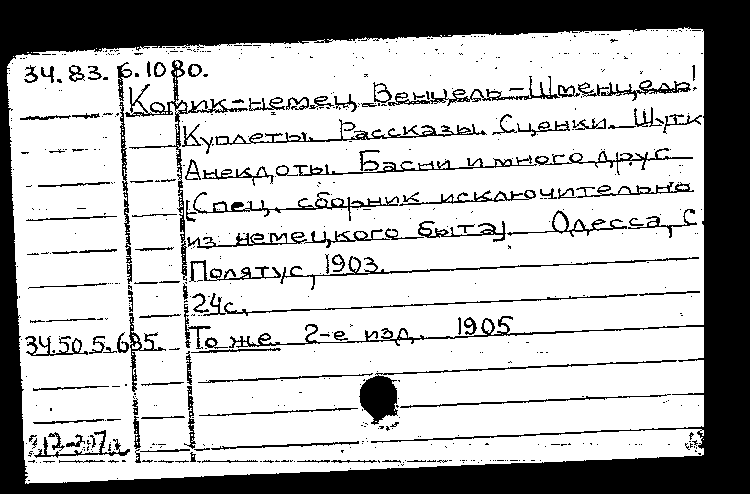 34.83.6.1080.
Комик-немец Венцель-Шменцель!
Куплеты. Рассказы. Сценки. Шутк
Анекдоты. Басни и много друг
[Спец. сборник исключительно
из немецкого быта]. Одесса, С.
Полятус, 1903.
24с.
34.50.5.685. То же. 2-е изд. 1905